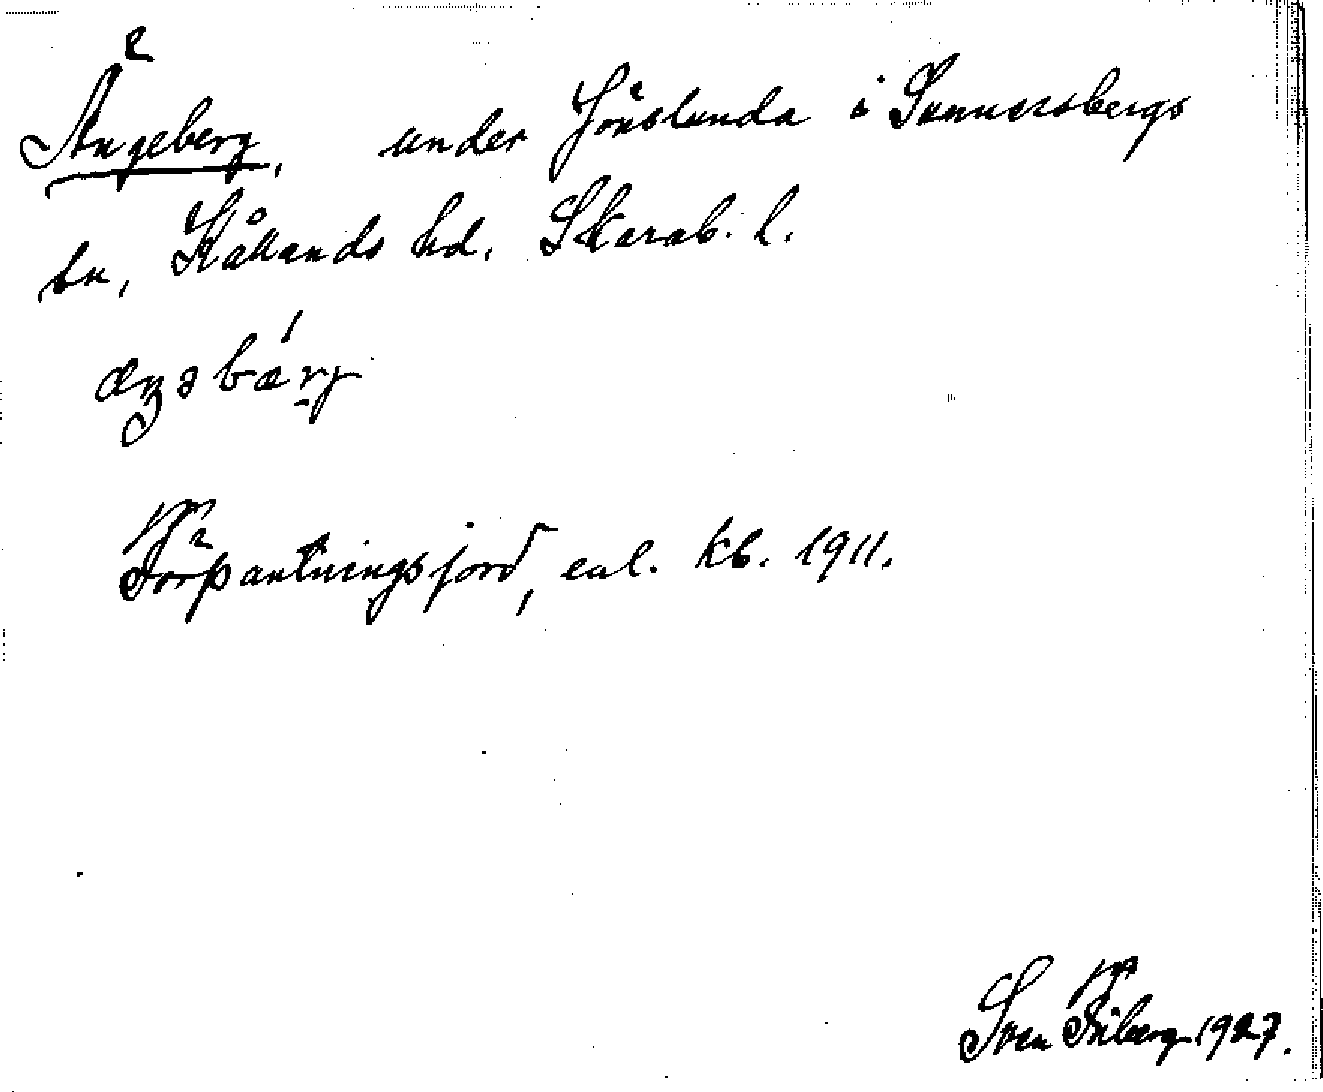 Ängeberg, under Jönslunda i Sunnersbergs
sn, Kållands hd. Skarab. l.
æŋəbærj
Förpantningsjord, enl. kb. 1911.
Sven Friberg 1927.